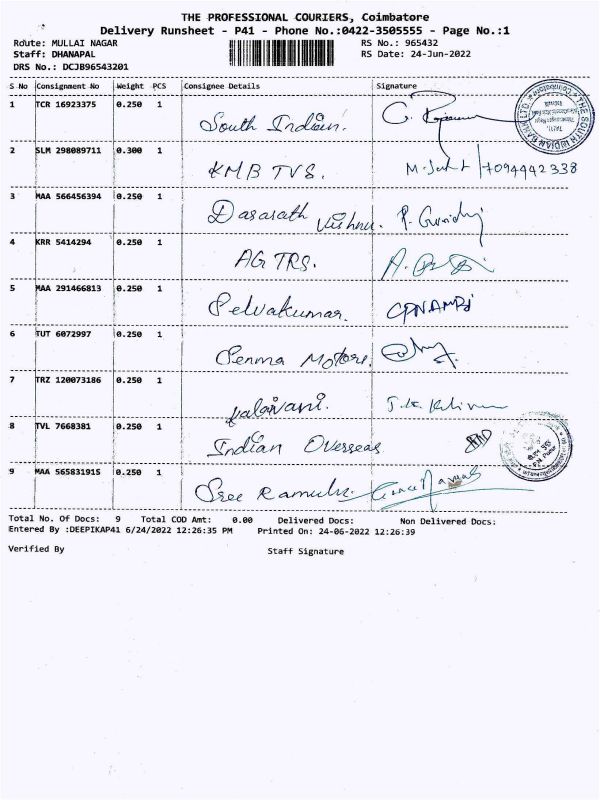 THE PROFESSIONAL COURIERS, Coimbatore
Delivery Runsheet - P41 - Phone No.:0422-3505555 - Page No.:1
Route: MULLAI NAGAR RS No.: 965432
Staff: DHANAPAL RS Date: 24-Jun-2022
DRS No.: DCJB96543201
S No Consignment No Weight PCS Consignee Details Signature
1 TCR 16923375 0.250 1
South Indian.
THE SOUTH INDIAN BANK LTD.
Coimbatore
2 SLM 298089711 0.300 1
KMB TVS. 7094442338
3 MAA 566456394 0.250 1
Dasarath Vishnu.
4 KRR 5414294 0.250 1
AG TRS.
5 MAA 291466813 0.250 1
Selvakumar.
6 TUT 6072997 0.250 1
Senma Motors.
7 TRZ 120073186 0.250 1
Kalaivani.
8 TVL 7668381 0.250 1
Indian Overseas
9 MAA 565831915 0.250 1
Sree Ramulu.
Total No. Of Docs: 9 Total COD Amt: 0.00 Delivered Docs: Non Delivered Docs:
Entered By :DEEPIKAP41 6/24/2022 12:26:35 PM Printed On: 24-06-2022 12:26:39
Verified By Staff Signature